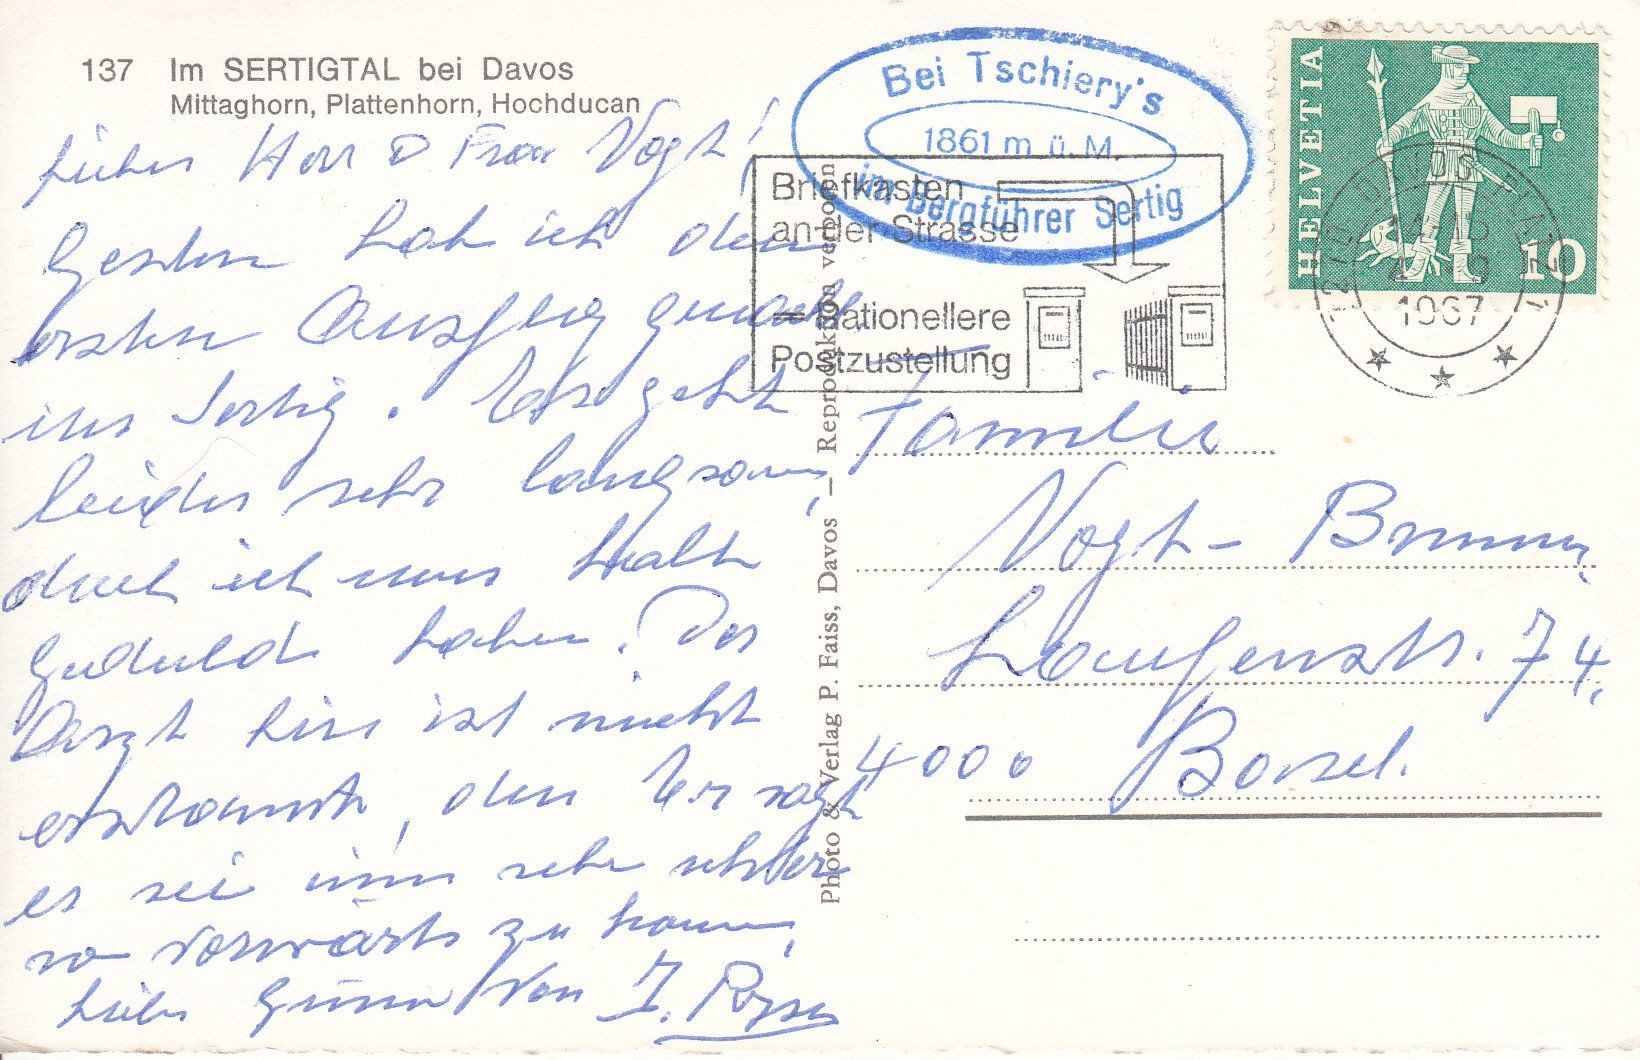 137 Im SERTIGTAL bei Davos
Mittaghorn, Plattenhorn, Hochducan
Lieber Herr & Frau Vogt!
Gestern hab ich den
ersten Ausflug gemacht
ins Sertig. Es geht
leider sehr langsam,
doch ich muss halt
Geduld haben. Der
Arzt hier ist nicht
erstaunt, den Er sagt
es sei immer sehr schwer
so vorwärts zu kommen,
Liebe Grüsse von J.
Bei Tschiery's
1861 m ü. M.
im Bergführer Sertig
Briefkasten
an der Strasse
= rationellere
Postzustellung
HELVETIA
10
1967
Photo & Verlag P. Faiss, Davos – Reproduktion verboten
Familie
Vogt-Brunner
Laufenstr. 74,
4000 Basel.